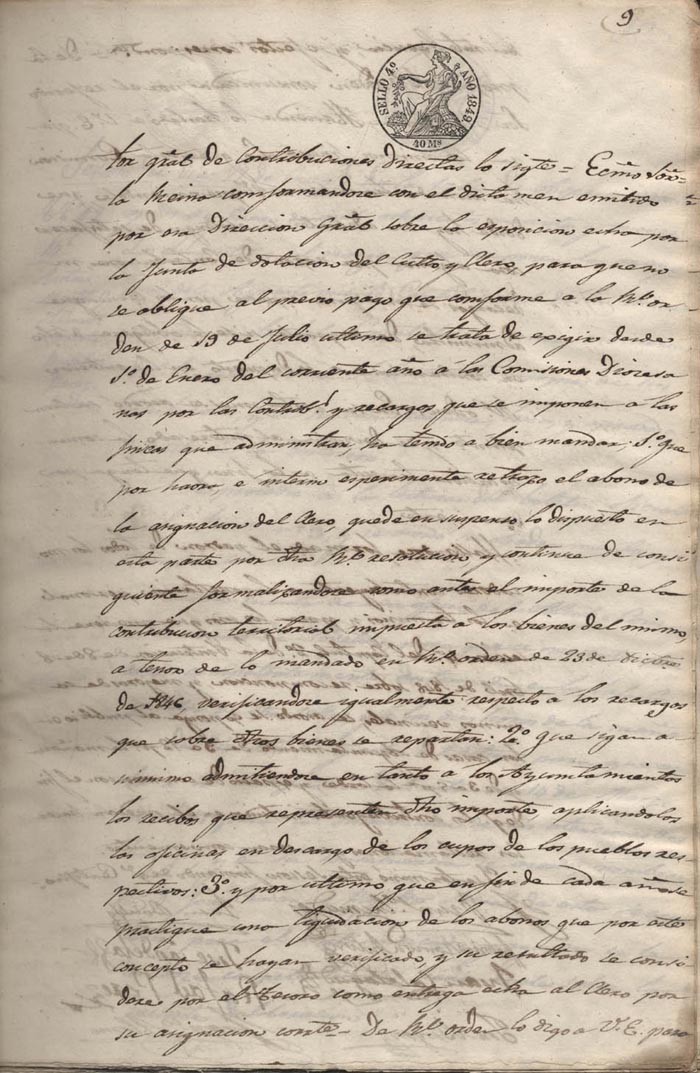 9
SELLO 4º AÑO 1849.
40 Ms
tor gral de Contribuciones Directas lo sigte = Ecmo Sor =
la Reina comformandose con el dictamen emitido
por esa Direccion Gral sobre la esposicion echa por
la Junta de dotacion del Culto y Clero, para que no
se oblique al previo pago que comforme a la Rl. or-
den de 19 de Julio ultimo se trata de exigir desde
1º de Enero del corriente año a las Comisiones Diocesa
nas por las Contribs. y recargos que se imponen a las
fincas que administran, ha tenido a bien mandar; 1º que
por haora, e interin esperimente retraso el abono de
la asignacion del Clero, quede en suspenso lo dispuesto en
esta parte por dha Rl. resolucion y continue de consi
guiente formalizandose como antes el importe de la
contribucion territorial impuesta a los bienes del mismo,
a tenor de lo mandado en Rl. orden de 23 de dicbre
de 1846, verificandose igualmente respecto a los recargos
que sobre dhos bienes se repartan: 2º que sigan a
simismo admitiendose en tanto a los Ayuntamientos
los recibos que representen dho importe, aplicandolos
las oficinas en descargo de los cupos de los pueblos res
pectivos: 3º y por ultimo que en fin de cada año se
practique una liquidacion de los abonos que por este
concepto se hayan verificado, y su resultado se consi
dere por el Tesoro como entrega echa al Clero por
su asignacion corrte = De Rl. orden lo digo a V. E. para